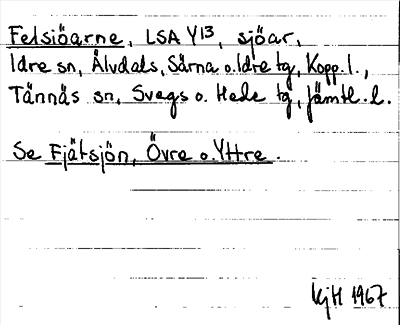 Felsiöarne, LSA Y13, sjöar,
Idre sn, Älvdals, Särna o. Idre tg, Kopp. l.,
Tännäs sn, Svegs o. Hede tg, Jämtl. l.
Se Fjätsjön, Övre o. Yttre.
KjH 1967